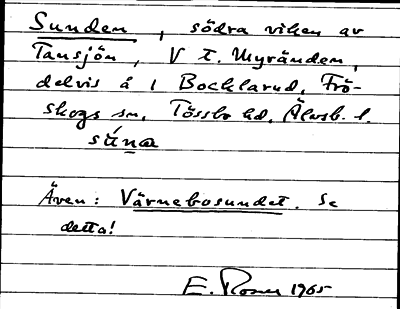 Sunden, södra viken av
Tansjön, V t. Myränden,
delvis å 1 Bocklarud, Frö-
skogs sn, Tössbo hd, Älvsb. l.
súna
Även: Värnebosundet. Se
detta!
E. Rosen 1965